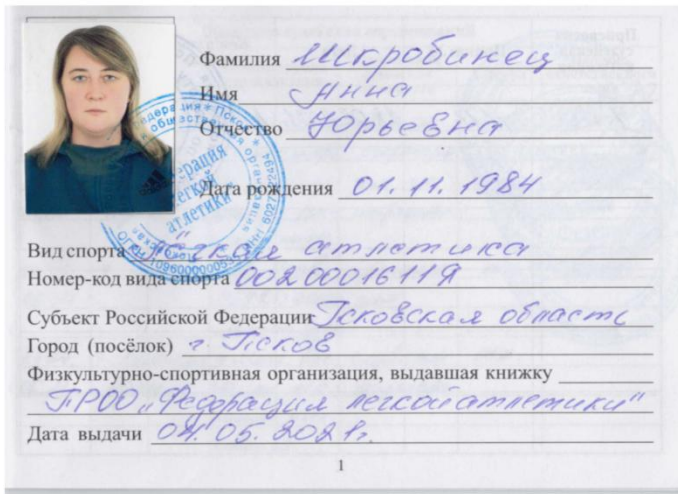 Фамилия Шкробинец
Имя Анна
Отчество Юрьевна
Дата рождения 01.11.1984
Вид спорта легкая атлетика
Номер-код вида спорта 0020001611Я
Субъект Российской Федерации Псковская область
Город (посёлок) г. Псков
Физкультурно-спортивная организация, выдавшая книжку
ПРОО „Федерация легкой атлетики"
Дата выдачи 04.05.2021г.
1